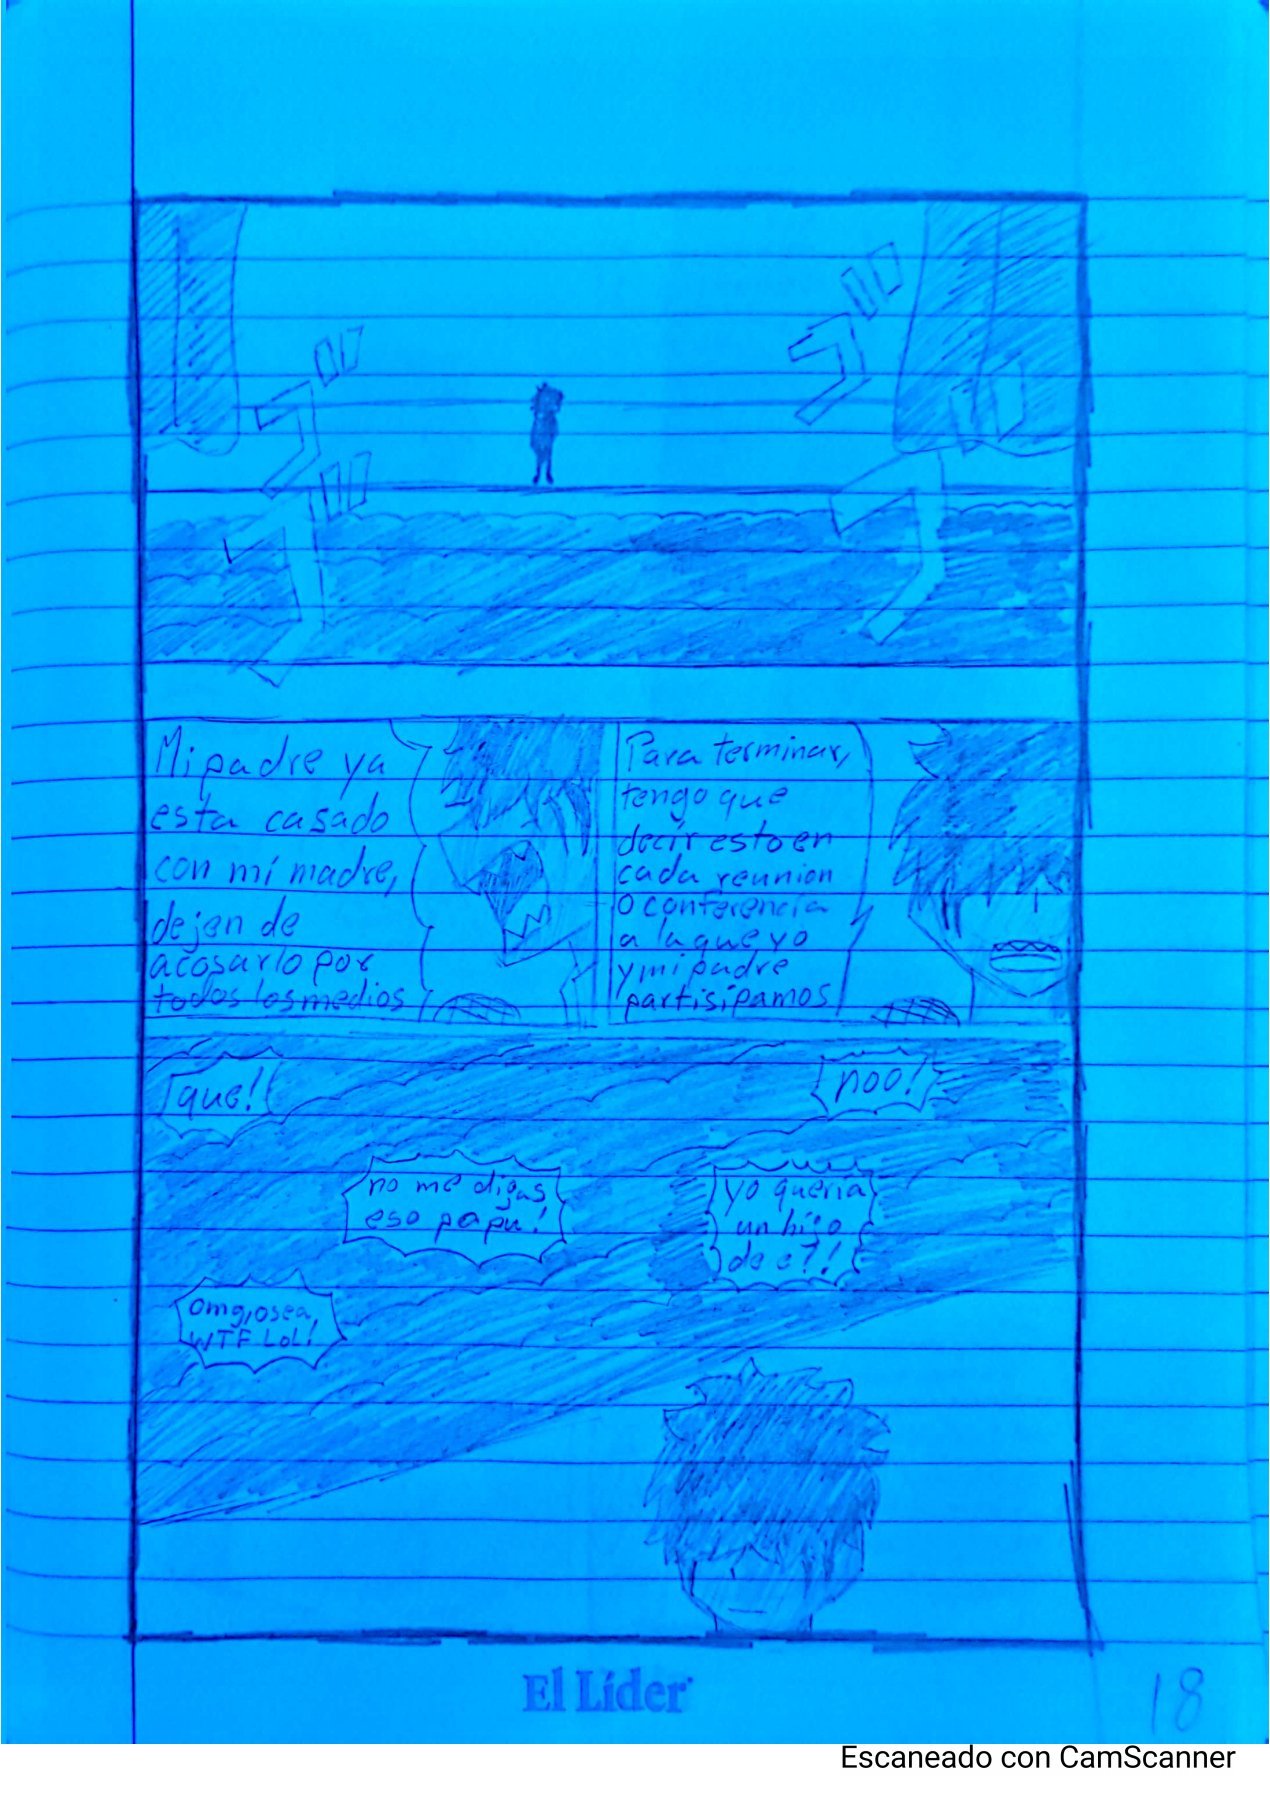 Mi padre ya
esta casado
con mi madre,
dejen de
acosarlo por
todos los medios
Para terminar,
tengo que
decir esto en
cada reunion
o conferencia
a la que yo
y mi padre
partisipamos
que!
noo!
no me digas
eso papu!
yo queria
un hijo
de e7!
Omg, osea,
WTF LoL!
El Líder
18
Escaneado con CamScanner